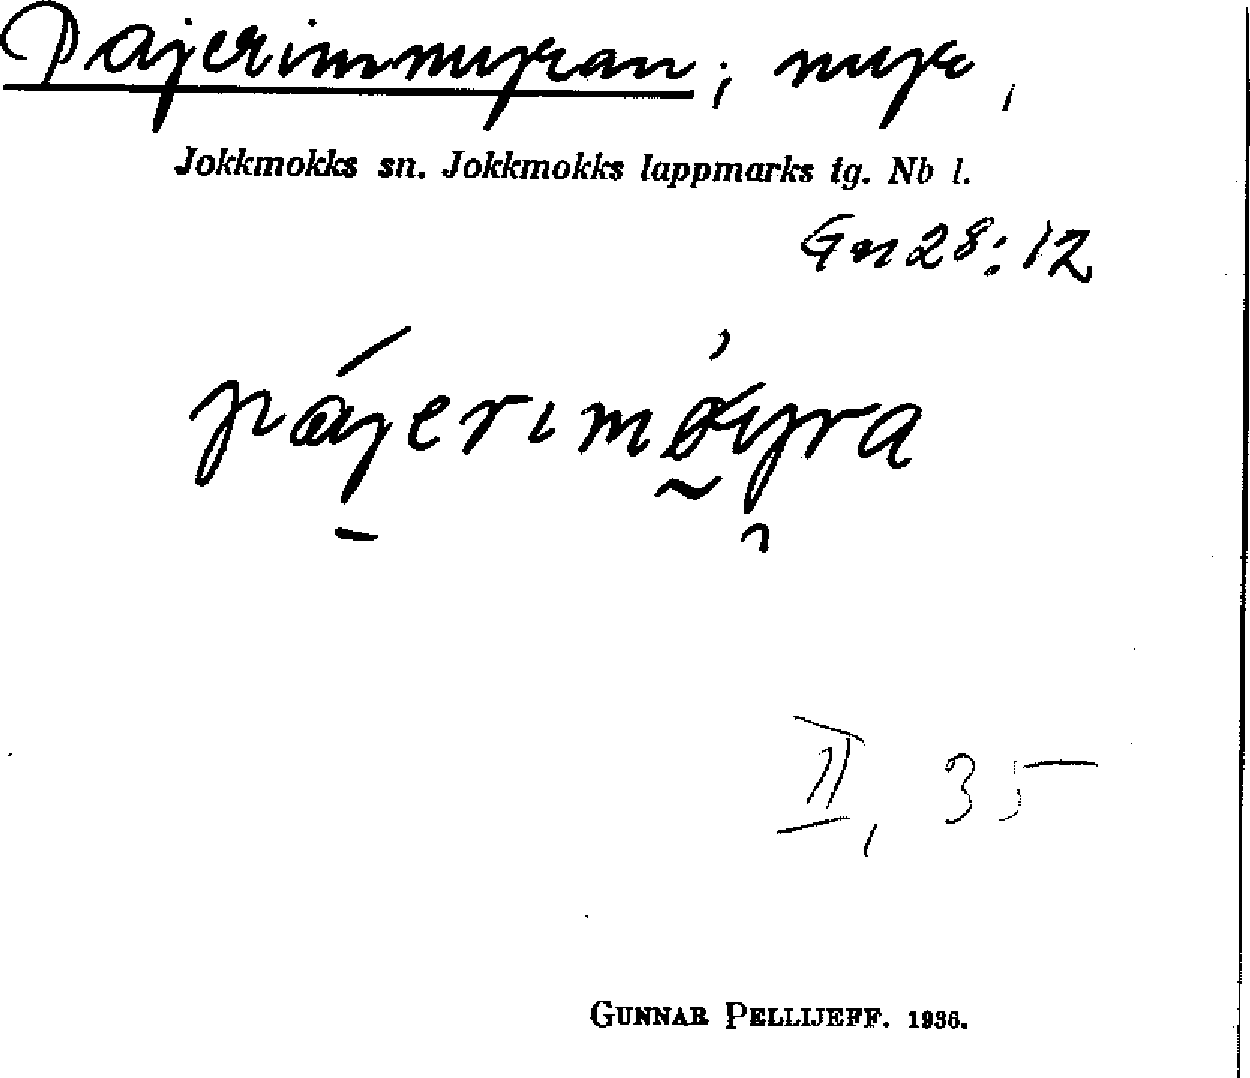 Pajerimmyran, myr,
Jokkmokks sn. Jokkmokks lappmarks tg. Nb l.
Gn 28:12
II, 35
GUNNAR PELLIJEFF. 1936.